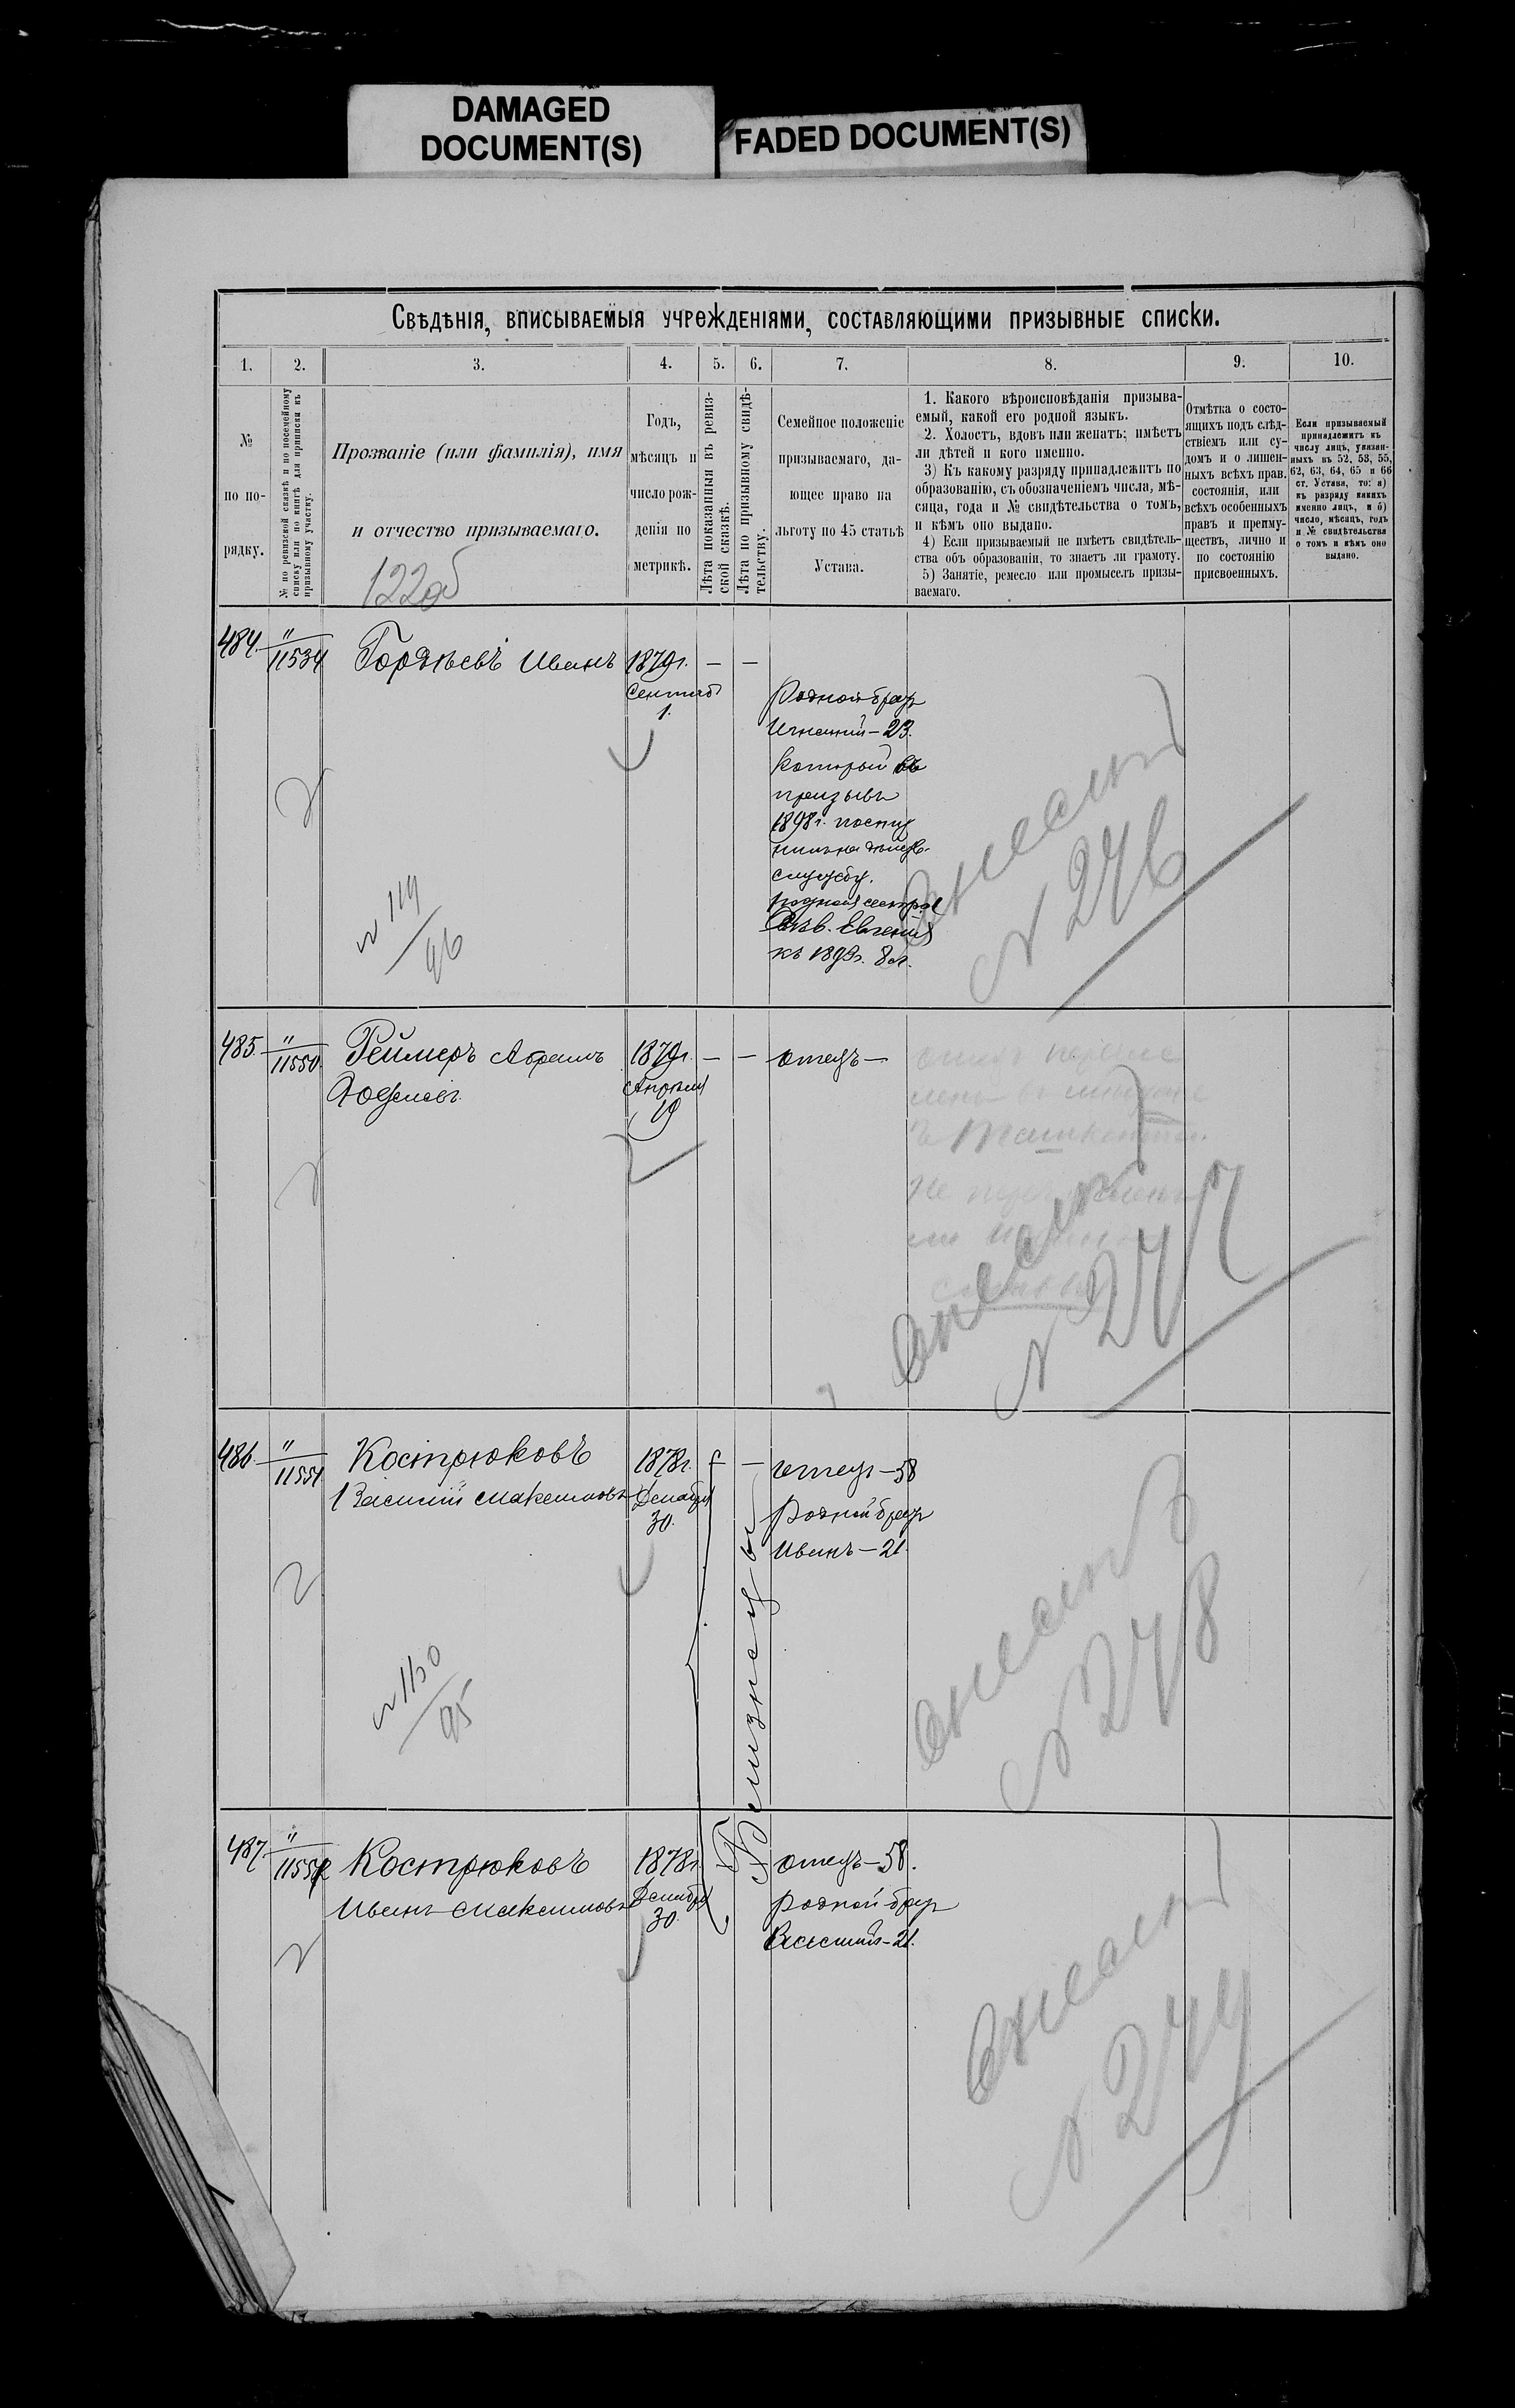 DAMAGED
DOCUMENT(S)
FADED DOCUMENT(S)
Свѣдѣнія, вписываемыя учрежденіями, составляющими призывные списки.
1.
2.
3.
4.
5.
6.
7.
8.
9.
10.
№
по по-
рядку.
№ по ревизской сказкѣ и по посемейному
списку или по книгѣ для приписки къ
призывному участку.
Прозваніе (или фамилія), имя
и отчество призываемаго.
122об
Годъ,
мѣсяцъ и
число рож-
денія по
метрикѣ.
Лѣта показанныя въ ревиз-
ской сказкѣ.
Лѣта по призывному свидѣ-
тельству.
Семейное положеніе
призываемаго, да-
ющее право на
льготу по 45 статьѣ
Устава.
1. Какого вѣроисповѣданія призыва-
емый, какой его родной языкъ.
2. Холостъ, вдовъ или женатъ; имѣетъ
ли дѣтей и кого именно.
3) Къ какому разряду принадлежитъ по
образованію, съ обозначеніемъ числа, мѣ-
сяца, года и № свидѣтельства о томъ,
и кѣмъ оно выдано.
4) Если призываемый не имѣетъ свидѣтель-
ства объ образованіи, то знаетъ ли грамоту.
5) Занятіе, ремесло или промыселъ призы-
ваемаго.
Отмѣтка о состо-
ящихъ подъ слѣд-
ствіемъ или су-
домъ и о лишен-
ныхъ всѣхъ прав.
состоянія, или
всѣхъ особенныхъ
правъ и преиму-
ществъ, лично и
по состоянію
присвоенныхъ.
Если призываемый
принадлежитъ къ
числу лицъ, указан-
ныхъ въ 52, 53, 55,
62, 63, 64, 65 и 66
ст. Устава, то: а)
къ разряду какихъ
именно лицъ, и б)
число, мѣсяцъ, годъ
и № свидѣтельства
о томъ и кѣмъ оно
выдано.
484. " 11534 Иванъ 1879г. — —
Сентяб
1.
Родной брат
Игнатій — 23.
который въ
призывъ
1898г. поступ
службу.
родная сестра
Евгенія
къ 1899г. 8 л.
№ 119
96
внесенъ
№ 276
485. " 11550. Реймеръ Абрамъ 1879г. — — отецъ —
Апрѣля
19
внесенъ
№ 277
486. " 11551 Костроковъ 1878г. — — отецъ — 58
Василій Максимовъ Декабря
30.
Родной брат
Иванъ — 21.
№ 1150
95
Близнецы
внесенъ
№ 278
487. " 11552 Кострюковъ 1878г. отецъ — 58.
Иванъ Максимовъ Декабря
30.
родной брат
Василій — 21.
внесенъ
№ 279